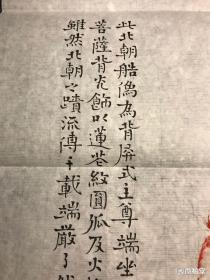 此北朝造像为背屏式主尊端坐
菩薩背光飾以蓮花紋圓弧及火
雖然北朝之蹟流傳千載端嚴了